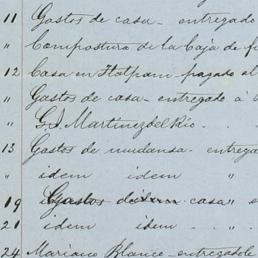 11 Gastos de casa - entregado
" Compostura de la Caja de f
12 Casa en Tlalpam - pagado al
" Gastos de casa - entregado á
" G. J. Martinez del Rio . .
13 Gastos de mudansa - entrega
" idem idem "
19 Gastos de casa " e
21 idem idem - . . "
24 Mariano Blanco - entregadole